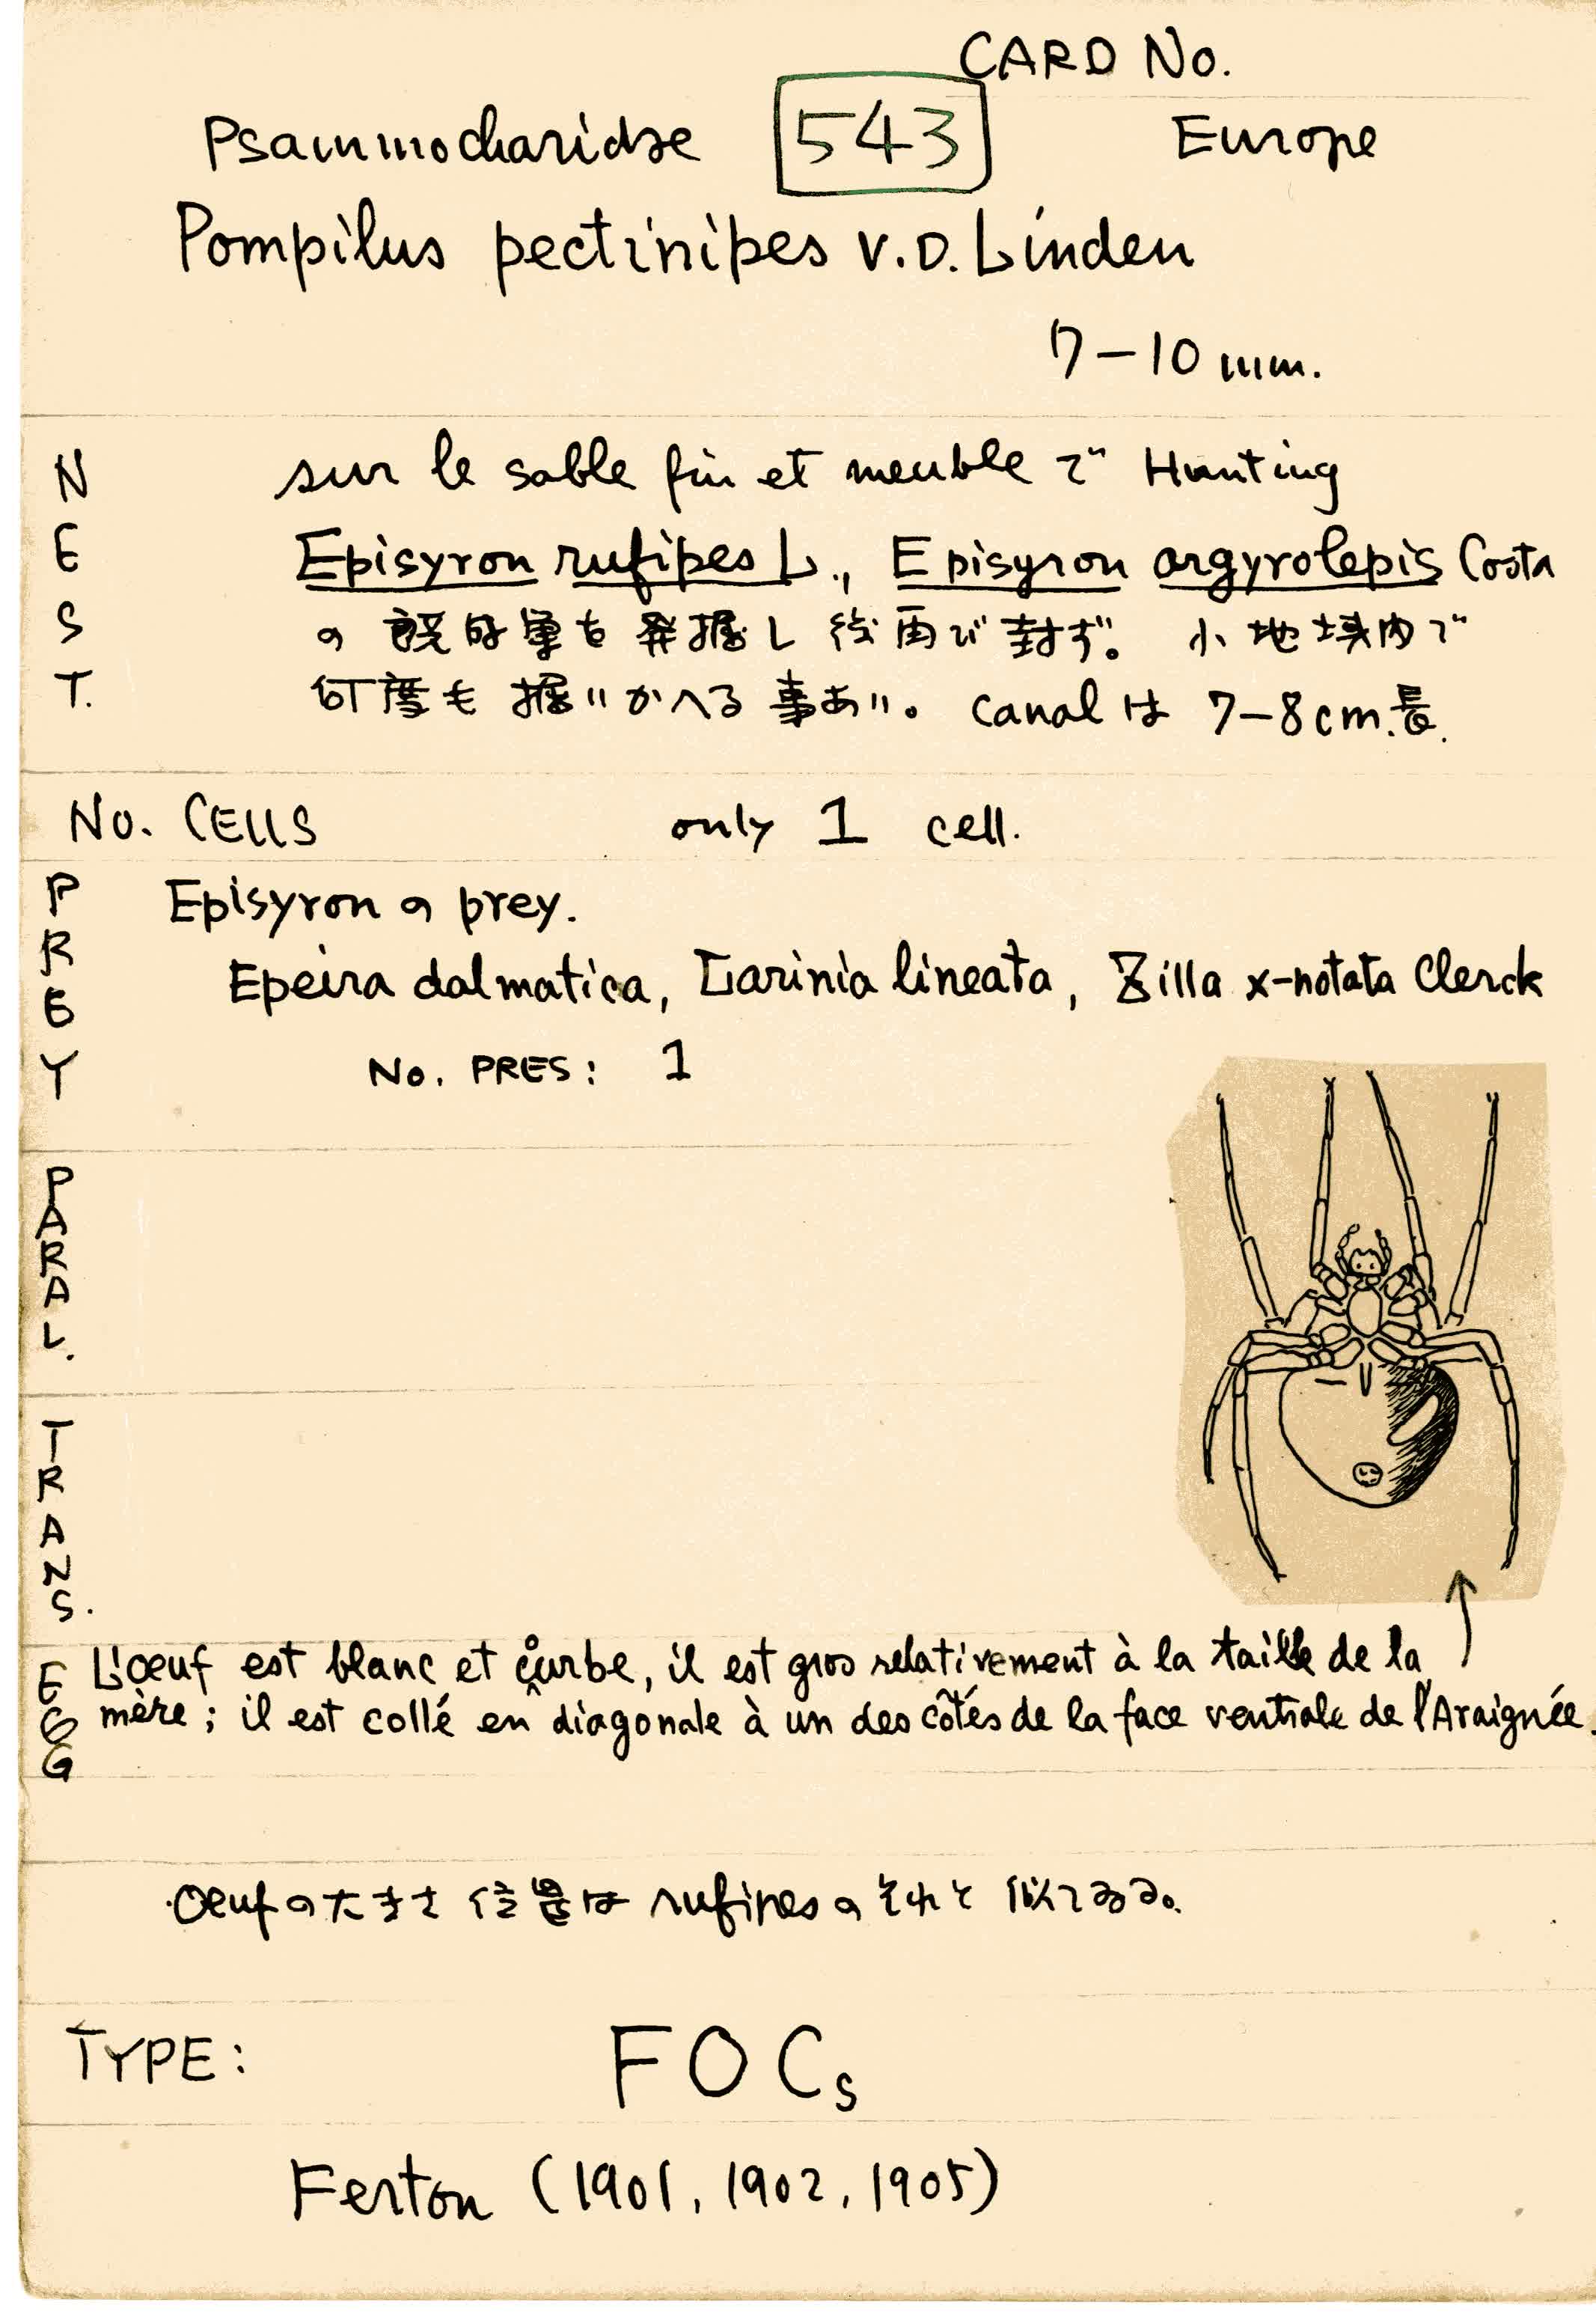 CARD No.
Psammocharidae 543 Europe
Pompilus pectinipes v.D.Linden
7-10 mm.
NEST. sur le sable fin et meuble で Hunting
Episyron rufipes L., Episyron argyrolepis Costa
の 既成巣を 発掘し 後再び 封ず。 小地域内で
何度も 掘りかへる 事あり。 canal は 7-8cm.長.
No. CELLS only 1 cell.
PREY Episyron の prey.
Epeira dalmatica, Larinia lineata, Zilla x-notata Clerck
No. PRES: 1
PARAL.
TRANS.
EGG L'œuf est blanc et courbe, il est gros relativement à la taille de la
mère; il est collé en diagonale à un des côtés de la face ventrale de l'Araignée.
Oeufの大きさ 位置は rufipesの それと 似てゐる。
TYPE: FOCs
Ferton (1901, 1902, 1905)